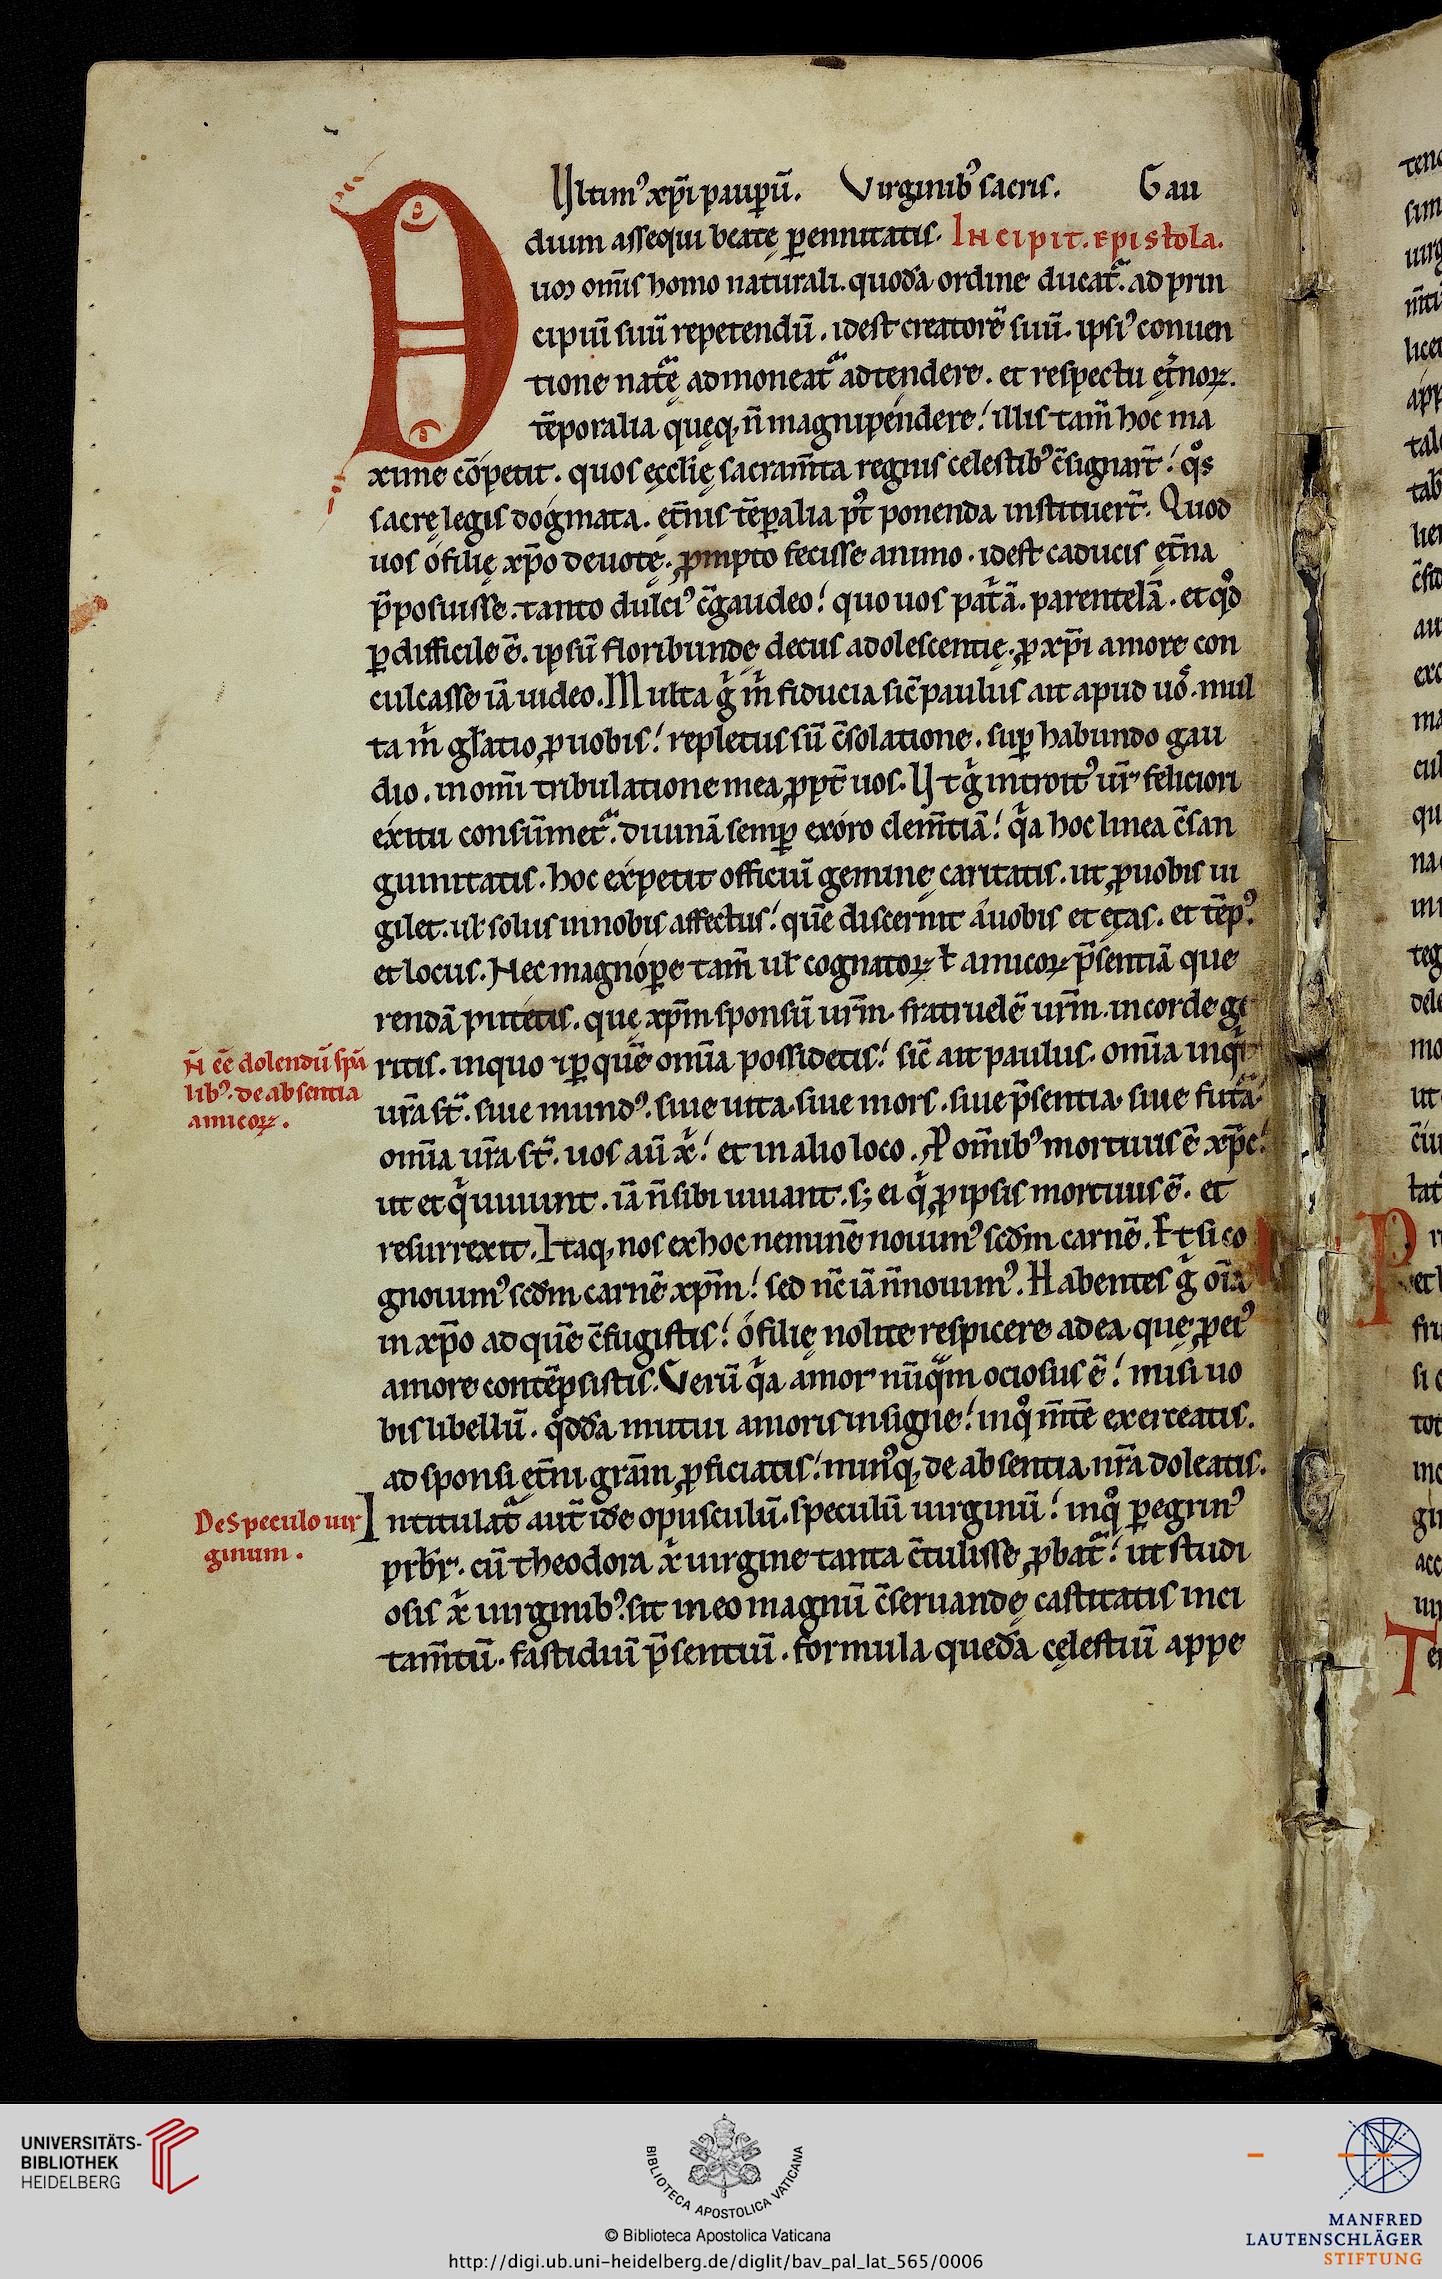 Ultim᾽ xp̄i paup̄ū. Virginib᾽ sacris. Gau
dium assequi beatę p̱ennitatis. Incipit. Epistola.
uō om̄is homo naturali. quodā ordine ducat᷑. ad prin
cipiū suū repetendū. idest creatorē suū. ipsi᾽ conuen
tione nat᷑ę admoneat᷑ adtendere. et respectu et᷑noꝝ.
tēporalia quęq; n̄ magnipendere! illis tam̄ hoc ma
xime cōpetit. quos ęcclię sacram̄ta regnis celestib᾽ c̄signar̄t! qͦs
sacrę legis dogmata. et᷑nis tēꝑalia pͥ᷑ ponenda instituer̄t. Quod
uos ó filię xp̄o deuotę. ꝓmpto fecisse animo. idest caducis ęt᷑na
p̄posuisse. tanto dulci᾽ c̄gaudeo! quo uos pat᷑ā. parentelā. et qͦd
ꝑdifficile ē. ipsū floribundę decus adolescentię. ꝓ xp̄i amore con
culcasse iā uideo. Multa g̊ m̊ fiducia sic̄ paulus ait apud uoͦ. mul
ta m̊ gl̄atio ꝓ uobis! repletus sū c̄solatione. suꝑ habundo gau
dio. in om̄i tribulatione mea ꝓpt̄ uos. Ut g̊ introit᾽ ur̄ feliciori
exitu consūmet᷑. diuinā semꝑ exoro clem̄tiā! qͣa hoc linea c̄san
guinitatis. hoc expetit officiū geminę caritatis. ut ꝓ uobis ui
gilet. ul̄ solus in nobis affectus! quē discernit á uobis et ętas. et tēp᾽
et locus. Nec magnoꝑe tam̄ ul̄ cognatoꝝ ł amicoꝝ p̄sentiā que
rendā putetis. quę xp̄m sponsū ur̄m. fratruelē ur̄m. in corde ge
ritis. in quo ⁊ ꝑ quē om̄ia possidetis! sic̄ ait paulus. om̄ia inqͥt
ur̄a st̄. siue mund᾽. siue uita. siue mors. siue p̄sentia siue fut᷑a
om̄ia ur̄a st̄. uos aū x̊! et in alio loco. Ꝓ om̄ib᾽ mortuus ē xp̄c!
ut et qͥ uiuunt. iā n̄ sibi uiuant. s; ei qͥ ꝓ ipsis mortuus ē. et
resurrexit. Itaq; nos ex hoc neminē nouim᾽ sc̄dm carnē. Et si co
gnouim᾽ sc̄dm carnē xp̄m! sed nc̄ iā n̄ nouim᾽. Habentes g̊ oīa
in xp̄o ad quē c̄fugistis! ó filię nolite respicere ad ea quę ꝓ ei᾽
amore contēpsistis. Verū qͣa amor nūqͣm ociosus ē! misi uo
bis libellū. qͦddā mutui amoris insigne! in qͦ m̄tē exerceatis.
ad sponsi ęt᷑ni gr̄am ꝓficiatis! min᾽q; de absentia nr̄a doleatis.
Intitulat᷑ aut̄ idē opusculū. speculū uirginū! in qͦ ꝑegrin᾽
prb̄r. cū theodora x̊ uirgine tanta c̄tulisse ꝓbat᷑! ut studi
osis x̊ uirginib᾽. sit in eo magnū c̄seruandę castitatis inci
tam̄tū. fastidiuī p̄sentiuī. formula quedā cęlestiū appe
N̄ eē dolendū spā
lib᾽. de absentia
amicoꝝ.
De Speculo uir
ginum.
UNIVERSITÄTS-
BIBLIOTHEK
HEIDELBERG
BIBLIOTECA APOSTOLICA VATICANA
© Biblioteca Apostolica Vaticana
http://digi.ub.uni-heidelberg.de/diglit/bav_pal_lat_565/0006
MANFRED
LAUTENSCHLÄGER
STIFTUNG